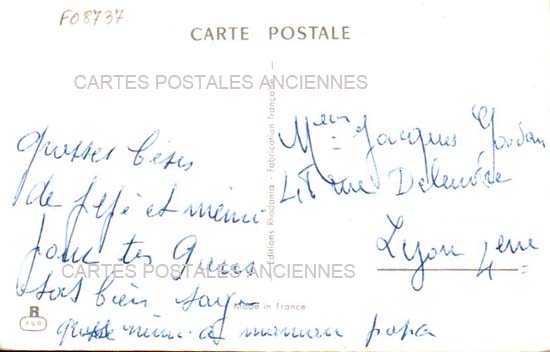 F08737
CARTE POSTALE
CARTES POSTALES ANCIENNES
Grosses bises
de pépé et mémé
pour tes
sois bien sage
mémé et maman papa
Meur Jacques
48 rue Delemée
Lyon 4eme
Editions Rhodania - Fabrication française
CARTES POSTALES ANCIENNES
Made in France
R